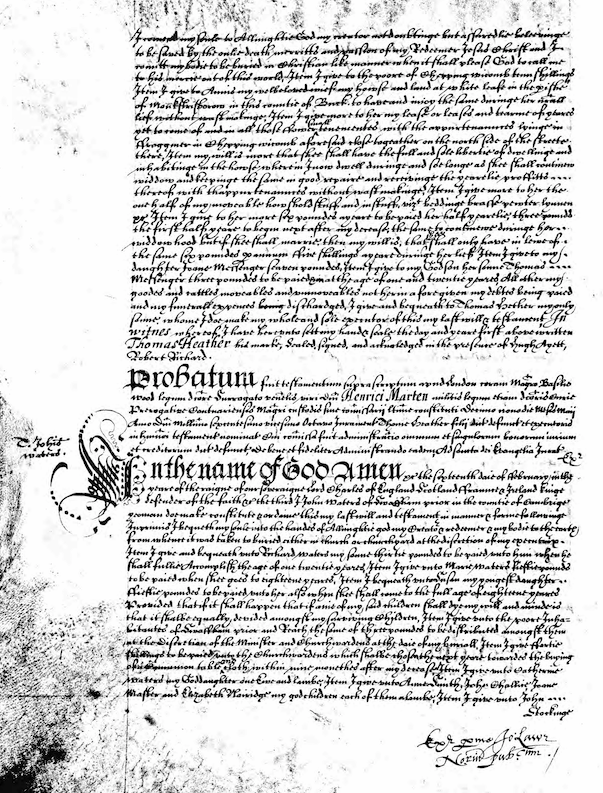 I comend my soule to Allmightie God my creator not doubtinge but assuredlie beleevinge
to be saved by the onlie death merritts and passion of my Redeemer Jesus Christ and I
comitt my bodie to be buried in Christian like manner when it shall please God to call me
to his mercie out of this world, Item I give to the poore of Chipping wicomb tenn shillings
Item I give to Annis my welbeloved wife my howse and land at white leafe in the pishe
of Monks Risborow in this countie of Buck. to have and inioy the same duringe her n̄rall
life without wast makinge, Item I give more to her my lease or leases and tearme of yeares
yet to come of and in all those severall tenementes with the appurtenannces lyinge in
in Chipping wicomb aforesaid close together on the north side of the streete
there, Item my will is more that shee shall have the full and sole libertie of dwellinge and
inhabitinge in the howse wherein I now dwell duringe and soe longe as shee shall continew
widdow and keepinge the same in good repaire and receivinge the yearelie proffitts
thereof with thappurtenannces without wast makinge, Item I give more to her the
one half of my moveable howshold stuff and in stuff, vizt beddinge brasse pewter lynnen
&c. Item I give to her more six poundes a yeare to be paied her half yearelie, three pounds
the first half yeare to begin next after my decease, the same to contineue duringe her
widdowhood but if shee shall marrie, then my will is, that shee shall only have in liewe of
the same six poundes p annum five shillings a yeare duringe her lief Item I give to my
daughter Joane Messenger seaven poundes, Item I give to my Godson her sonne Thomas
Messenger three poundes to be paied at the age of one and twentie yeares. All other my
goodes and cattles moveables and unmoveables not herein afore given my debtes being paied
and my funerall expences being discharged, I give and bequeath to Thomas Hether my only
sonne, whome I doe make my whole and sole executor of this my last will & testament In
witnes whereof, I have hereunto sett my hand & seale the day and yeare first above written
Thomas Heather his marke, Sealed, signed, and acknledged in the presence of Hugh Ayett,
Robert Richard.
Probatum fuit testamentum suprascriptum apud London coram Magro Basilio
Wood legum dcore Surrogato venerlis viri Dni Henrici Marten militis legum etiam dcoris Curie
Prerogative Cantuariensis Magri custodis sive comissarij ltime constituti Decimo nono die mensis Maij
Anno Dni Millimo sexcentesimo vicesimo Octavo Iuramento Thome Heather filij dicti defuncti et executoris
in hmoi testamento nominat Cui comissa fuit administratio omnium et singulorum bonorum iurium
et creditorum dicti defuncti, De bene et fideliter Administrando eadem Ad sancta dei Evangelia Iurat. Exr.
T. Johis
Waters.
In the name of God Amen the sixteenth daie of February, in the
yeare of the raigne of our soveraigne lord Charles of England Scotland Fraunce & Ireland kinge
defender of the faith &c the third I John Waters of Swaffham prior in the countie of Cambridge
yeoman doe make constitute & ordaine this my last will and testament in manner & forme followinge
Inprimis I bequeth my soule into the handes of Allmightie god my Creator & redeemer & my bodie to the earth
from whence it was taken to buried either in church or churchyard at the discretion of my executrix
Item I give and bequeath unto Richard Waters my sonne thirtie poundes to be paied unto him when he
shall fullie Accomplish the age of one twentie yeares, Item I give unto Marie Waters fiftie poundes
to be paied when shee goes to eighteene yeares, Item I bequeath unto Susan my yongest daughter
fiftie poundes to be paied unto her also when shee shall come to the full age of eighteene yeares
Provided that if it shall happen that if anie of my said children shall dye my will and minde is
that it shalbe equally devided amongst my surviving Children, Item I give unto the poore Inha-
bitantes of Swaffham prior and Reach the some of three poundes to be distributed amongst them
at the discretion of the Minister and Churchwardens at the daie of my buriall. Item I give fortie
shillings to be paied unto the Churchwardens which shalbe chosen the next yeare towardes the buying
of a Communion table Cloth, within nine monethes after my decease, Item I give unto Catherine
Waters my Goddaughter one Ewe and lambe, Item I give unto John Challis, Joane
Master and Elizabeth my godchildren each of them a lambe, Item I give unto John
Stockinge